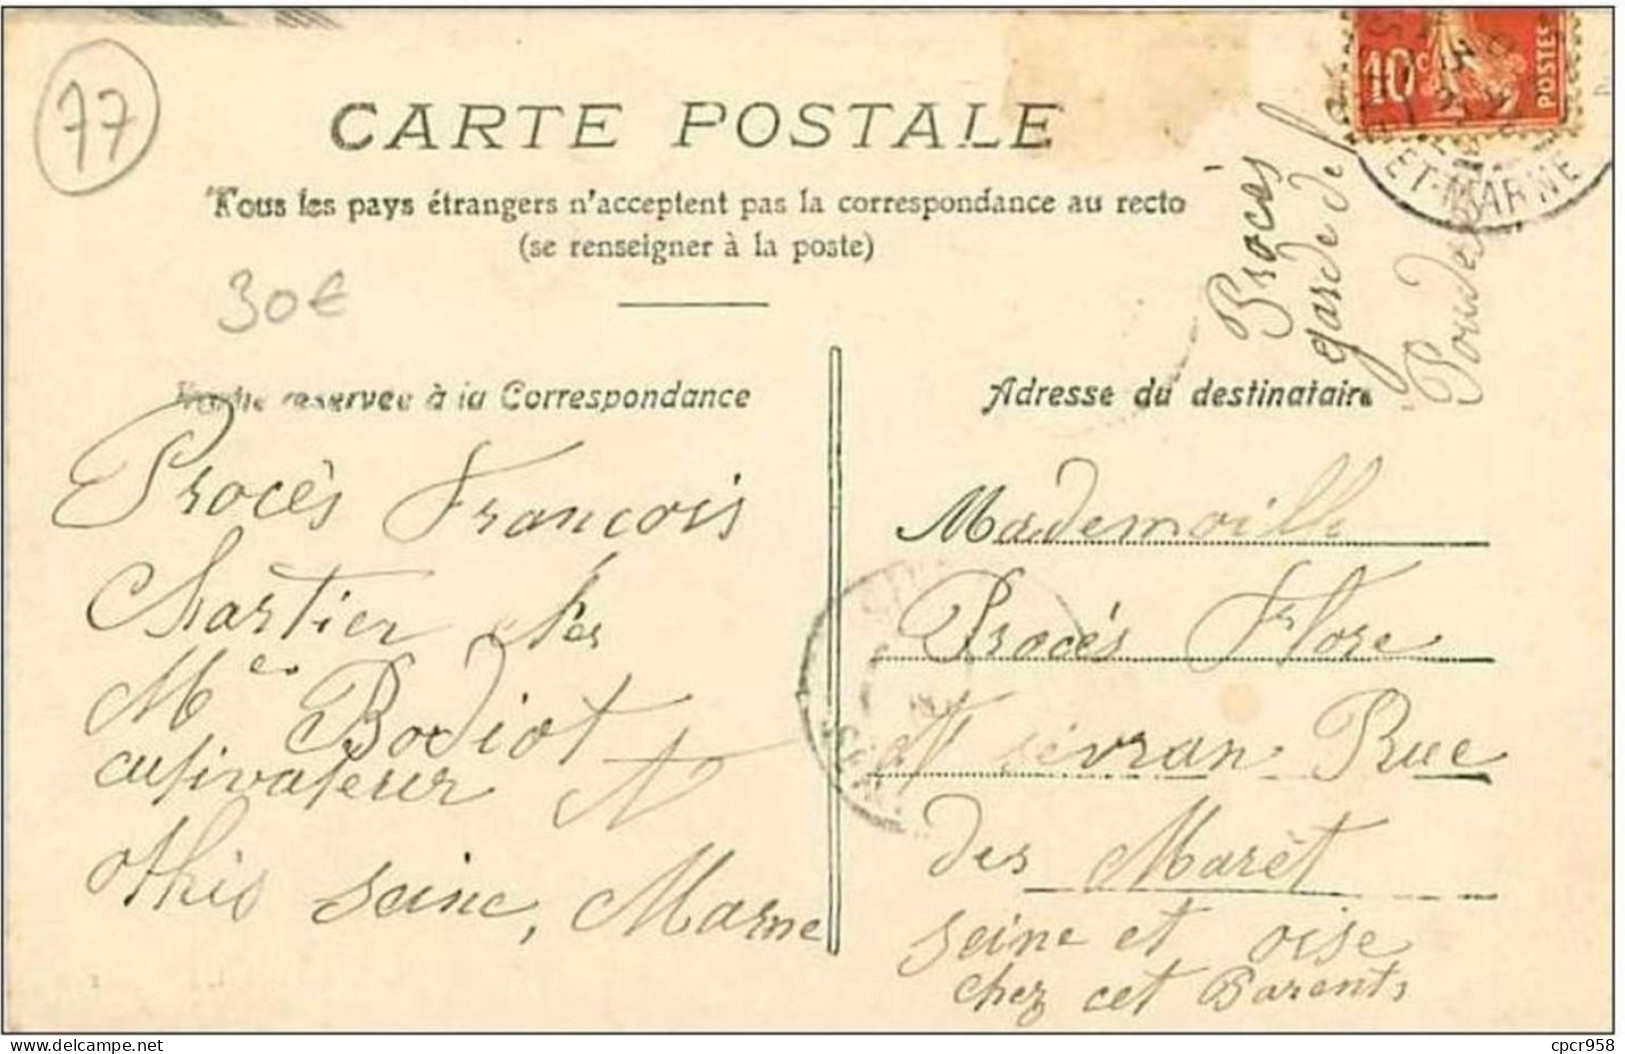 77
CARTE POSTALE
Tous les pays étrangers n'acceptent pas la correspondance au recto
(se renseigner à la poste)
30€
10c
POSTES
ET-MARNE
Procès
garde de
Poudres
réservée à la Correspondance
Procès Francois
Chartier chés
Me Bodiot
cultivateur
othis seine, Marne
Adresse du destinataire
Mademoille
Procés Flore
sévran Rue
des Marêt
seine et oise
chez cet Parents
delcampe.net
cpcr958